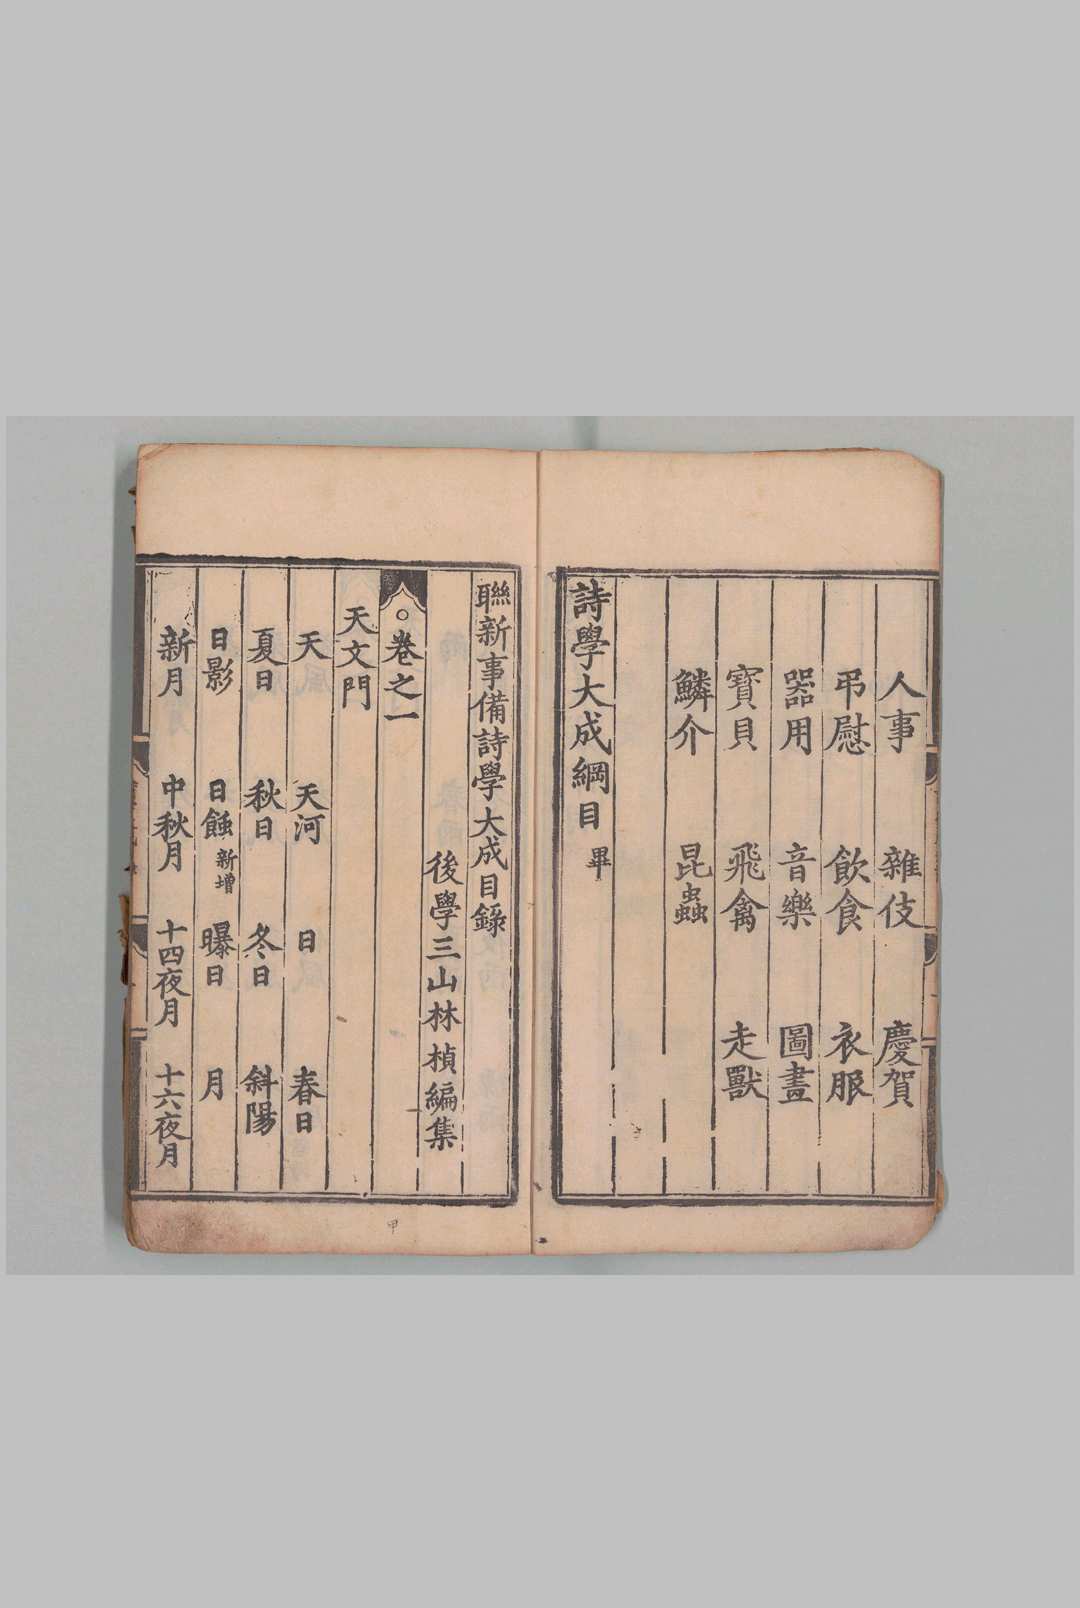 人事 雜伎 慶賀
弔慰 飲食 衣服
器用 音樂 圖畫
寶貝 飛禽 走獸
鱗介 昆蟲
詩學大成綱目 畢
聯新事備詩學大成目錄
後學三山林 楨編集
○卷之一
天文門
天 天河 日 春日
夏日 秋日 冬日 斜陽
日影 日蝕 新增 曝日 月
新月 中秋月 十四夜月 十六夜月
甲